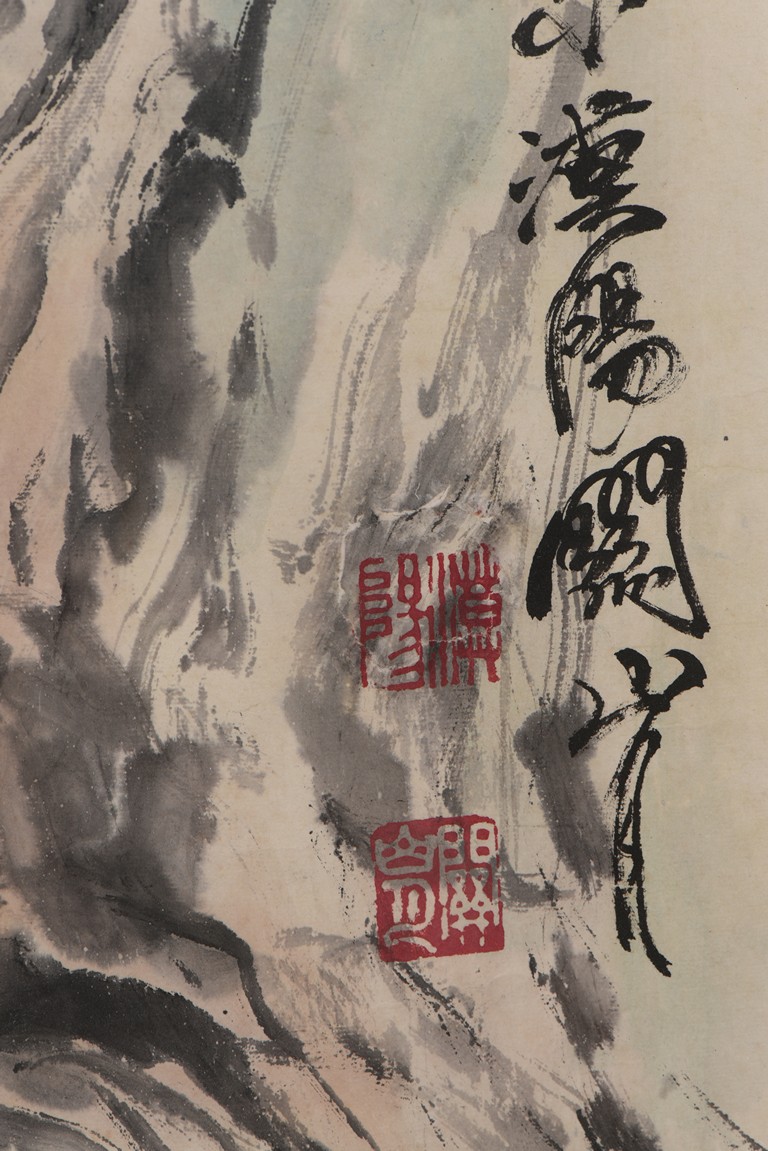 漠陽關山月
漠陽
關山月